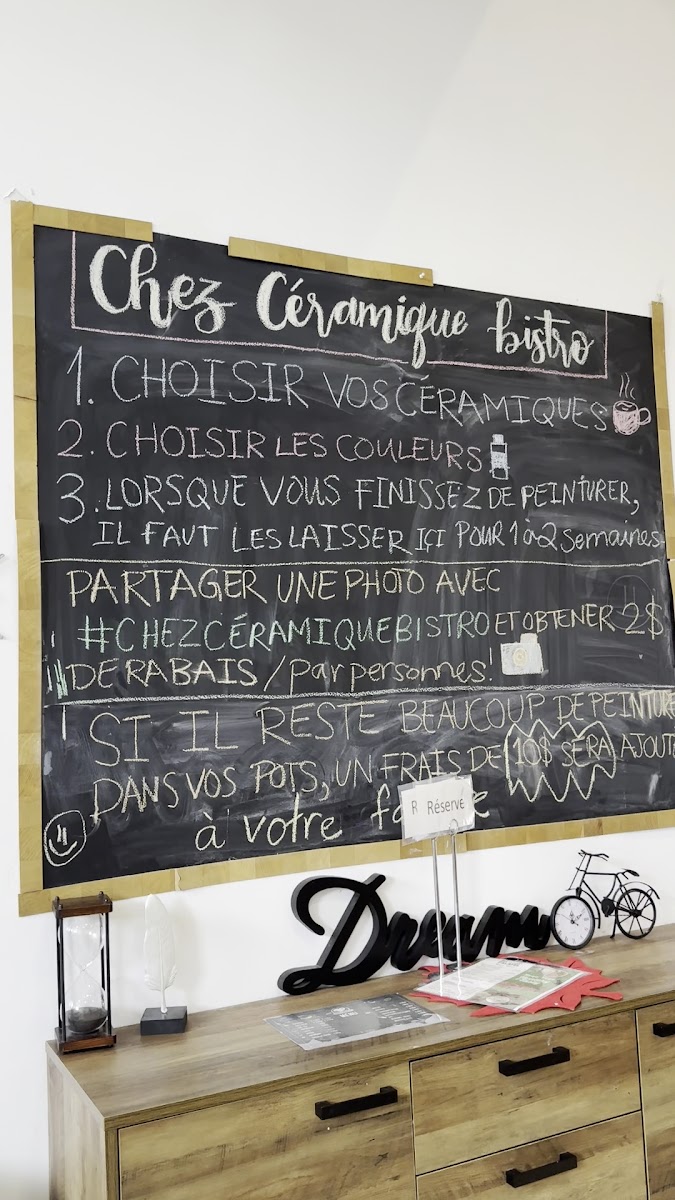 Chez Céramique bistro
1. CHOISIR VOS CÉRAMIQUES
2. CHOISIR LES COULEURS
3. LORSQUE VOUS FINISSEZ DE PEINTURER,
IL FAUT LES LAISSER IÇI POUR 1 à 2 semaines
PARTAGER UNE PHOTO AVEC
#CHEZCÉRAMIQUEBISTRO ET OBTENER 2$
DE RABAIS / par personnes.
SI IL RESTE BEAUCOUP DE PEINTURE
DANS VOS POTS, UN FRAIS DE 10$ SERA AJOUTÉ
à votre
Réservé
Dream